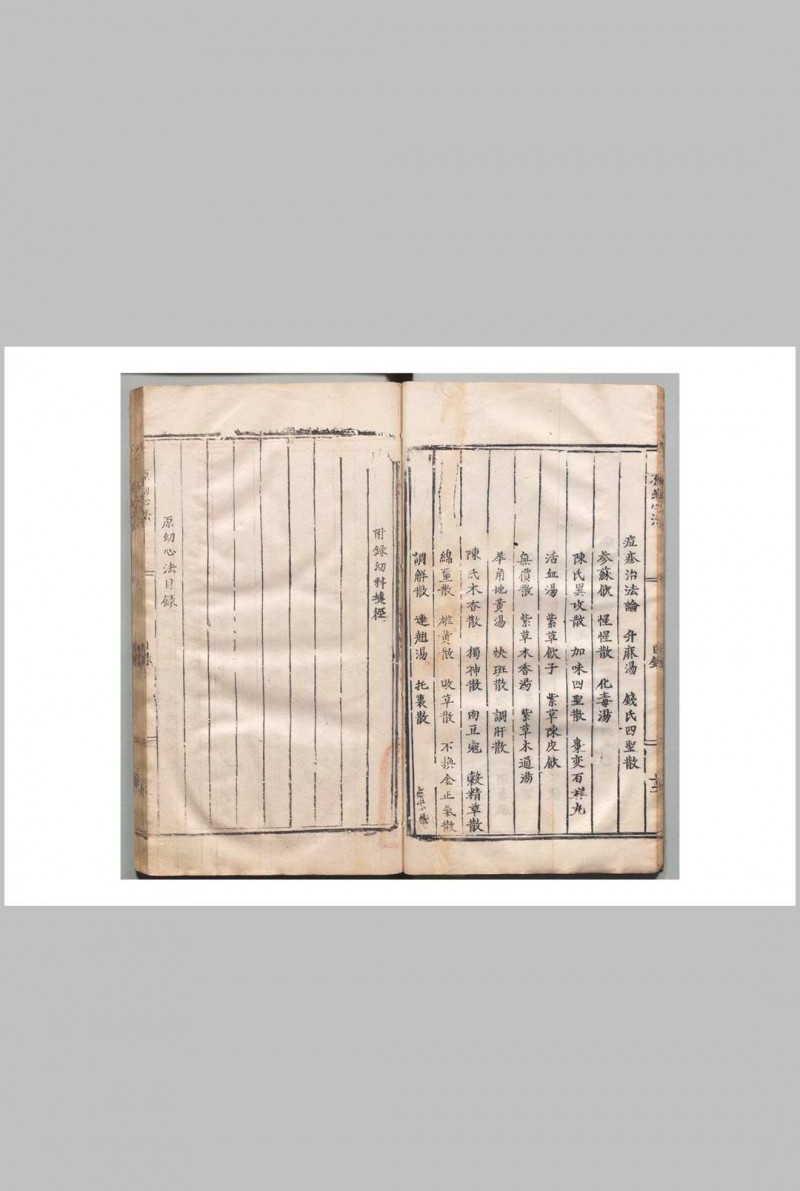 痘疹治法論 升麻湯 錢氏四聖散
參蘇飲 惺惺散 化毒湯
陳氏異攻散 加味四聖散 臺變百祥丸
活血湯 紫草飲子 紫草陳皮飲
無價散 紫草木香湯 紫草木通湯
犀角地黃湯 快斑散 調肝散
陳氏木香散 獨神散 肉豆蔻 穀精草散
綿蠒散 雄黃散 敗草散 不換金正氣散
調解散 連翹湯 托裏散
附錄幼科捷徑
原幼心法目錄
原幼心法
目錄